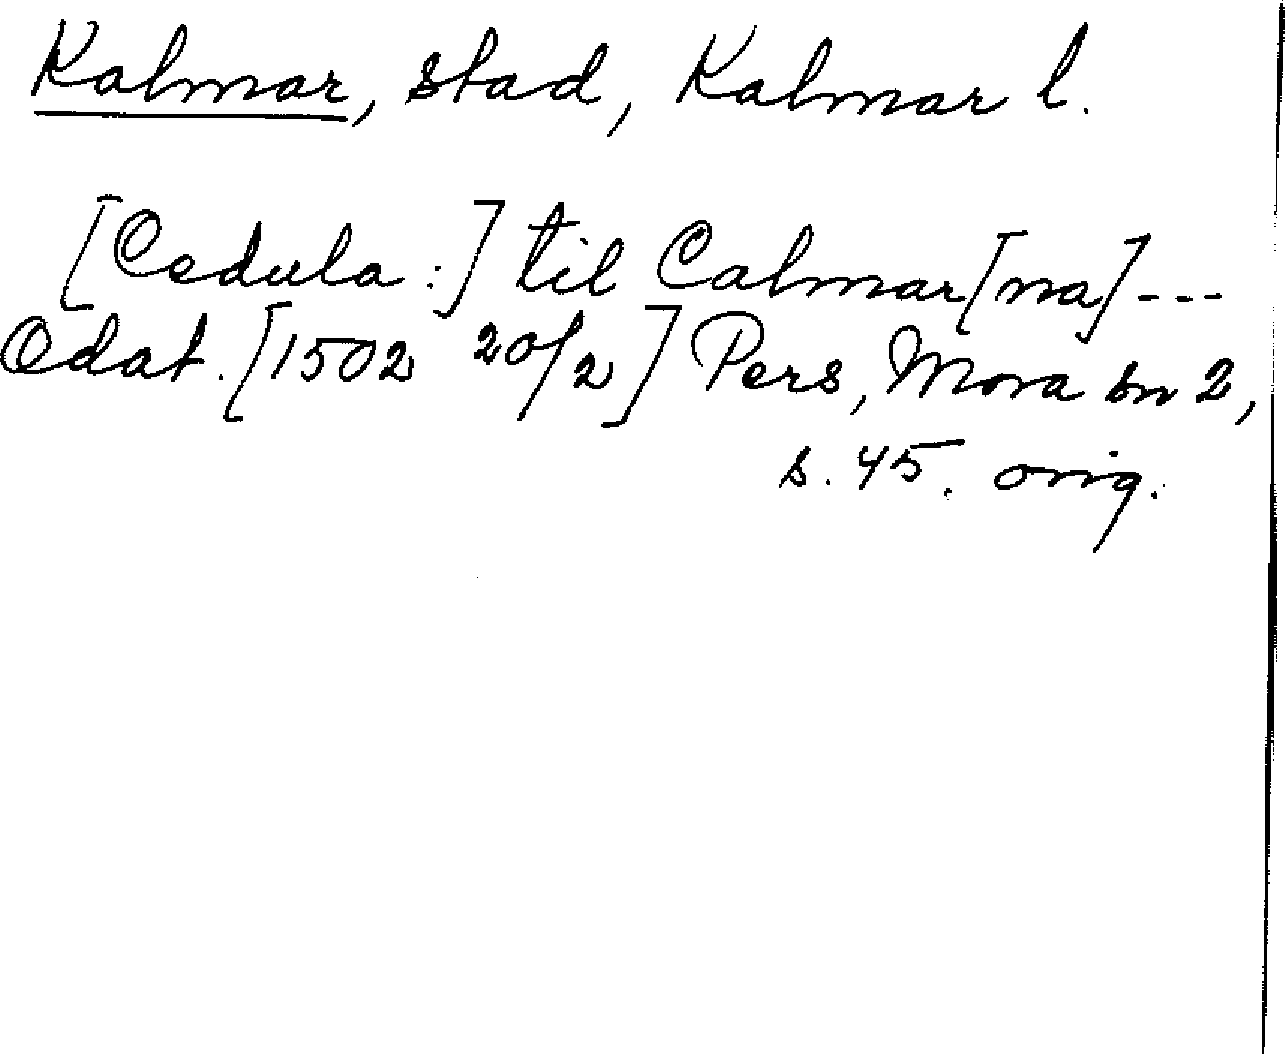 Kalmar, stad, Kalmar l.
[Cedula:] til Calmar[na]---
Odat. [1502 20/2] Pers, Mora sn 2,
s. 45. orig.